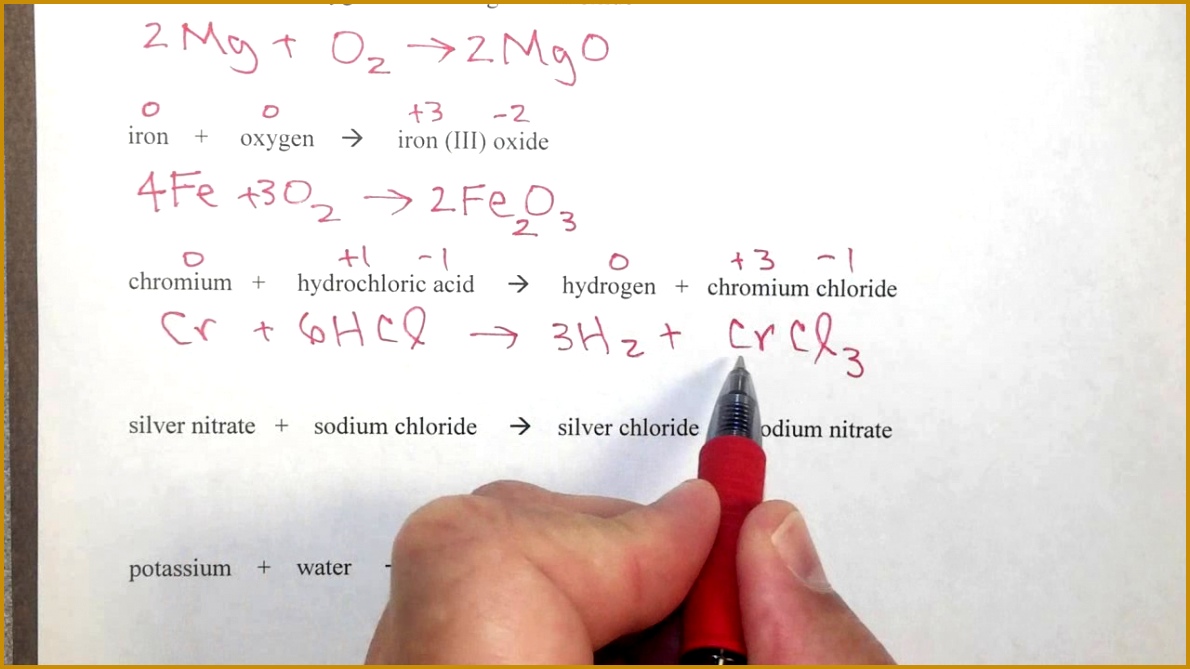 2Mg + O₂ → 2MgO
0 0 +3 -2
iron + oxygen → iron (III) oxide
4Fe +3O₂ → 2Fe₂O₃
0 +1 -1 0 +3 -1
chromium + hydrochloric acid → hydrogen + chromium chloride
Cr + 6HCl → 3H₂ + CrCl₃
silver nitrate + sodium chloride → silver chloride odium nitrate
potassium + water